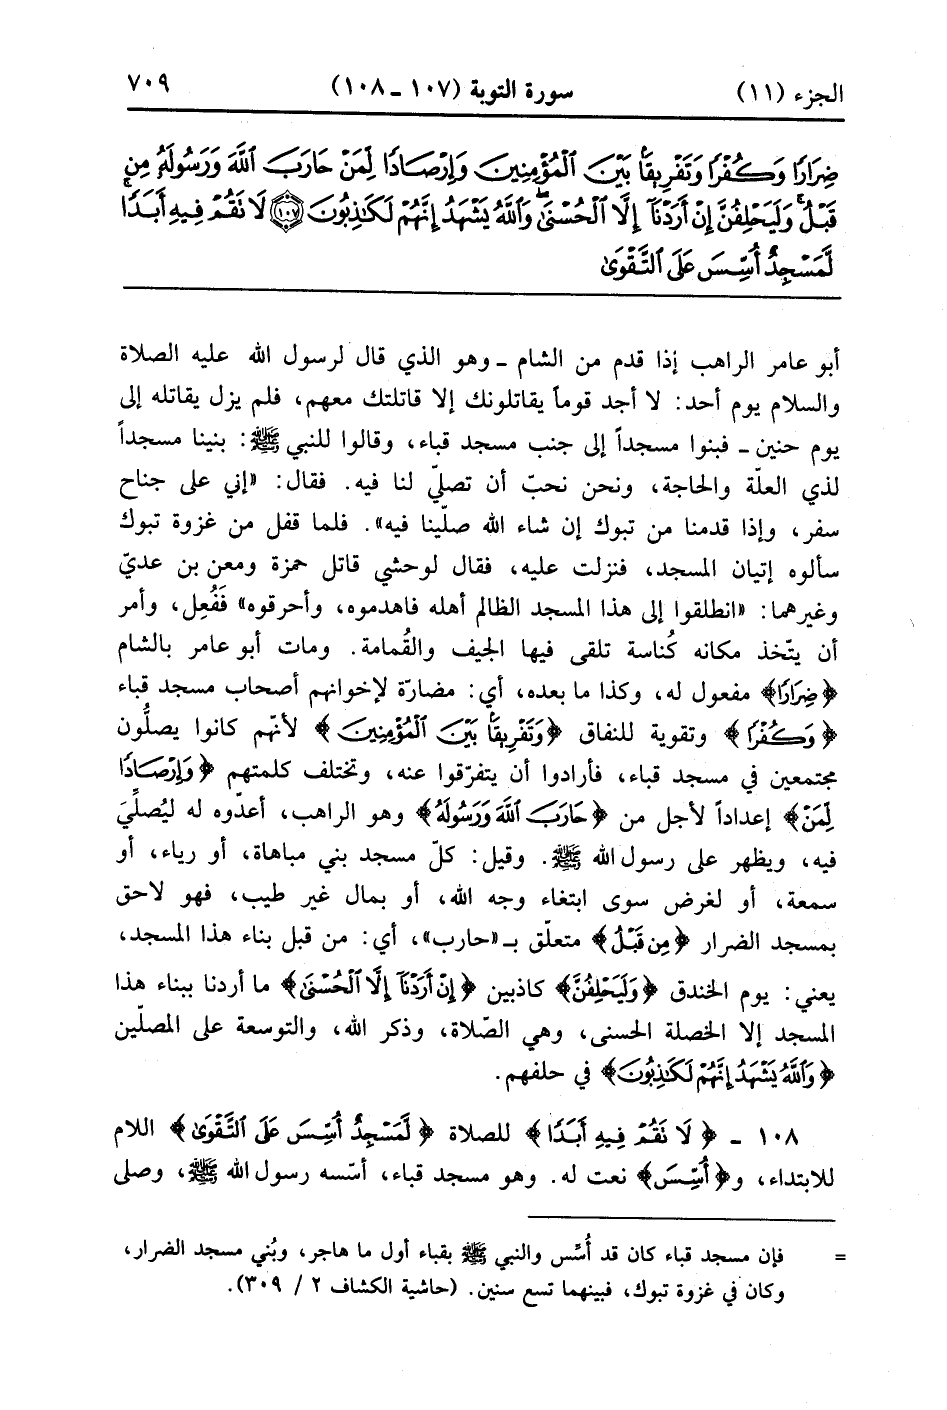 الجزء (١١) سورة التوبة (١٠٧ ـ ١٠٨) ٧٠٩
ضِرَارًا وَكُفْرًا وَتَفْرِيقًۢا بَيْنَ ٱلْمُؤْمِنِينَ وَإِرْصَادًا لِّمَنْ حَارَبَ ٱللَّهَ وَرَسُولَهُۥ مِن
قَبْلُۚ وَلَيَحْلِفُنَّ إِنْ أَرَدْنَآ إِلَّا ٱلْحُسْنَىٰۖ وَٱللَّهُ يَشْهَدُ إِنَّهُمْ لَكَٰذِبُونَ ١٠٧ لَا تَقُمْ فِيهِ أَبَدًاۚ
لَّمَسْجِدٌ أُسِّسَ عَلَى ٱلتَّقْوَىٰ
أبو عامر الراهب إذا قدم من الشام ـ وهو الذي قال لرسول الله عليه الصلاة
والسلام يوم أحد: لا أجد قوماً يقاتلونك إلا قاتلتك معهم، فلم يزل يقاتله إلى
يوم حنين ـ فبنوا مسجداً إلى جنب مسجد قباء، وقالوا للنبي ﷺ: بنينا مسجداً
لذي العلّة والحاجة، ونحن نحبّ أن تصلّي لنا فيه. فقال: «إني على جناح
سفر، وإذا قدمنا من تبوك إن شاء الله صلّينا فيه». فلما قفل من غزوة تبوك
سألوه إتيان المسجد، فنزلت عليه، فقال لوحشي قاتل حمزة ومعن بن عديّ
وغيرهما: «انطلقوا إلى هذا المسجد الظالم أهله فاهدموه، وأحرقوه» فَفُعِل، وأمر
أن يتّخذ مكانه كُناسة تلقى فيها الجيف والقُمامة. ومات أبو عامر بالشام
﴿ضِرَارًا﴾ مفعول له، وكذا ما بعده، أي: مضارّة لإخوانهم أصحاب مسجد قباء
﴿وَكُفْرًا﴾ وتقوية للنفاق ﴿وَتَفْرِيقًۢا بَيْنَ ٱلْمُؤْمِنِينَ﴾ لأنّهم كانوا يصلُّون
مجتمعين في مسجد قباء، فأرادوا أن يتفرّقوا عنه، وتختلف كلمتهم ﴿وَإِرْصَادًا
لِّمَنْ﴾ إعداداً لأجل من ﴿حَارَبَ ٱللَّهَ وَرَسُولَهُ﴾ وهو الراهب، أعدّوه له ليُصلِّيَ
فيه، ويظهر على رسول الله ﷺ. وقيل: كلّ مسجد بني مباهاة، أو رياء، أو
سمعة، أو لغرض سوى ابتغاء وجه الله، أو بمال غير طيب، فهو لاحق
بمسجد الضرار ﴿مِن قَبْلُ﴾ متعلّق بـ«حارب»، أي: من قبل بناء هذا المسجد،
يعني: يوم الخندق ﴿وَلَيَحْلِفُنَّ﴾ كاذبين ﴿إِنْ أَرَدْنَآ إِلَّا ٱلْحُسْنَىٰ﴾ ما أردنا ببناء هذا
المسجد إلا الخصلة الحسنى، وهي الصّلاة، وذكر الله، والتوسعة على المصلّين
﴿وَٱللَّهُ يَشْهَدُ إِنَّهُمْ لَكَٰذِبُونَ﴾ في حلفهم.
١٠٨ ـ ﴿لَا تَقُمْ فِيهِ أَبَدًا﴾ للصلاة ﴿لَّمَسْجِدٌ أُسِّسَ عَلَى ٱلتَّقْوَىٰ﴾ اللام
للابتداء، و﴿أُسِّسَ﴾ نعت له. وهو مسجد قباء، أسّسه رسول الله ﷺ، وصلى
= فإن مسجد قباء كان قد أُسِّس والنبي ﷺ بقباء أول ما هاجر، وبُني مسجد الضرار،
وكان في غزوة تبوك، فبينهما تسع سنين. (حاشية الكشاف ٢ / ٣٠٩).